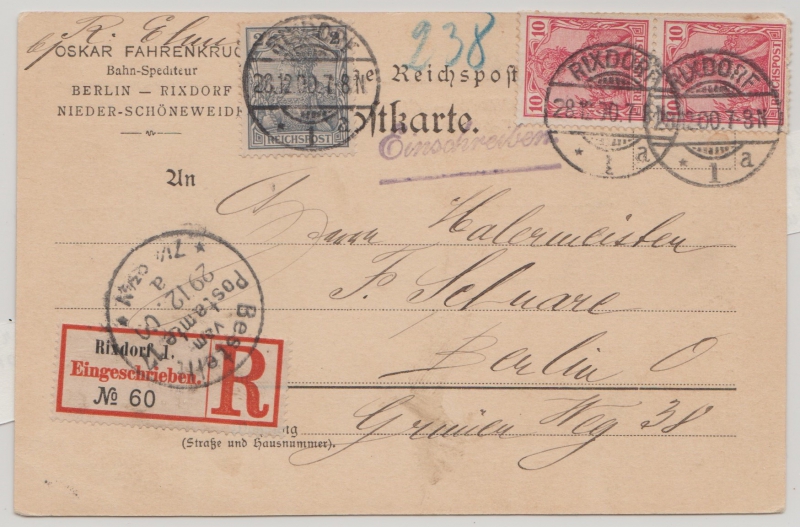 R.
OSKAR FAHRENKRUG
Bahn-Spediteur
BERLIN – RIXDORF
NIEDER-SCHÖNEWEIDE
REICHSPOST
28.12.00.7-8N
* 1 a
238
Reichspost
Postkarte.
Einschreiben
10 10
REICHSPOST
10 10
REICHSPOST
RIXDORF
28.12.00.7-8N
* 1 a
RIXDORF
28.12.00.7-8N
* 1 a
An
Herrn Malermeister
F. Schwarz
Berlin O
Grüner Weg 38
Bestellt
vom
Postamte
29.12.00
Rixdorf 1.
Eingeschrieben.
№ 60
R
(Straße und Hausnummer).